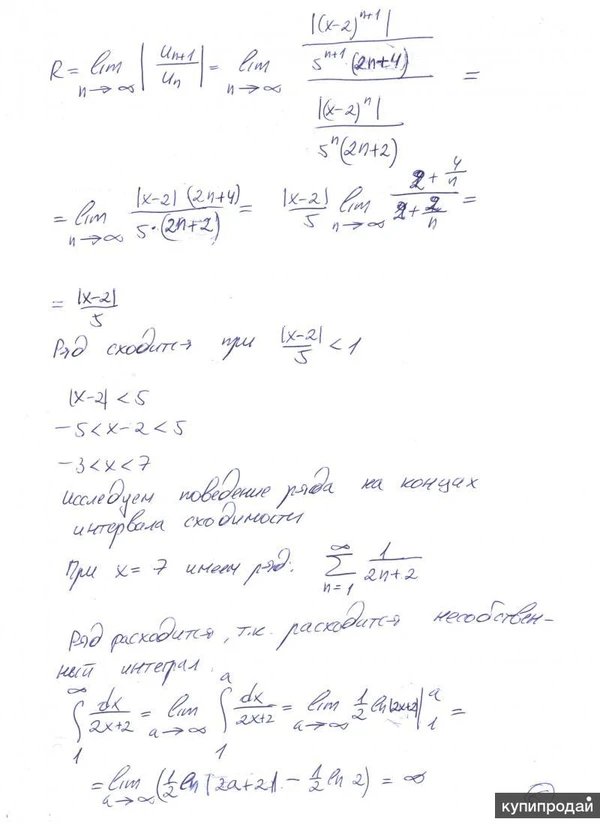 R = lim n→∞ |u_{n+1}/u_n| = lim n→∞ (|(x-2)^{n+1}| / (5^{n+1} (2n+4))) / (|(x-2)^n| / (5^n (2n+2))) =
= lim n→∞ |x-2| (2n+4) / (5·(2n+2)) = |x-2|/5 lim n→∞ (2 + 4/n) / (2 + 2/n) =
= |x-2|/5
Ряд сходится при |x-2|/5 < 1
|x-2| < 5
-5 < x-2 < 5
-3 < x < 7
исследуем поведение ряда на концах
интервала сходимости
При x = 7 имеем ряд: ∑_{n=1}^{∞} 1/(2n+2)
Ряд расходится, т.к. расходится несобствен-
ний интеграл.
∫_1^∞ dx/(2x+2) = lim a→∞ ∫_1^a dx/(2x+2) = lim a→∞ 1/2 ln|2x+2| |_1^a =
= lim a→∞ (1/2 ln|2a+2| - 1/2 ln 2) = ∞
купипродай